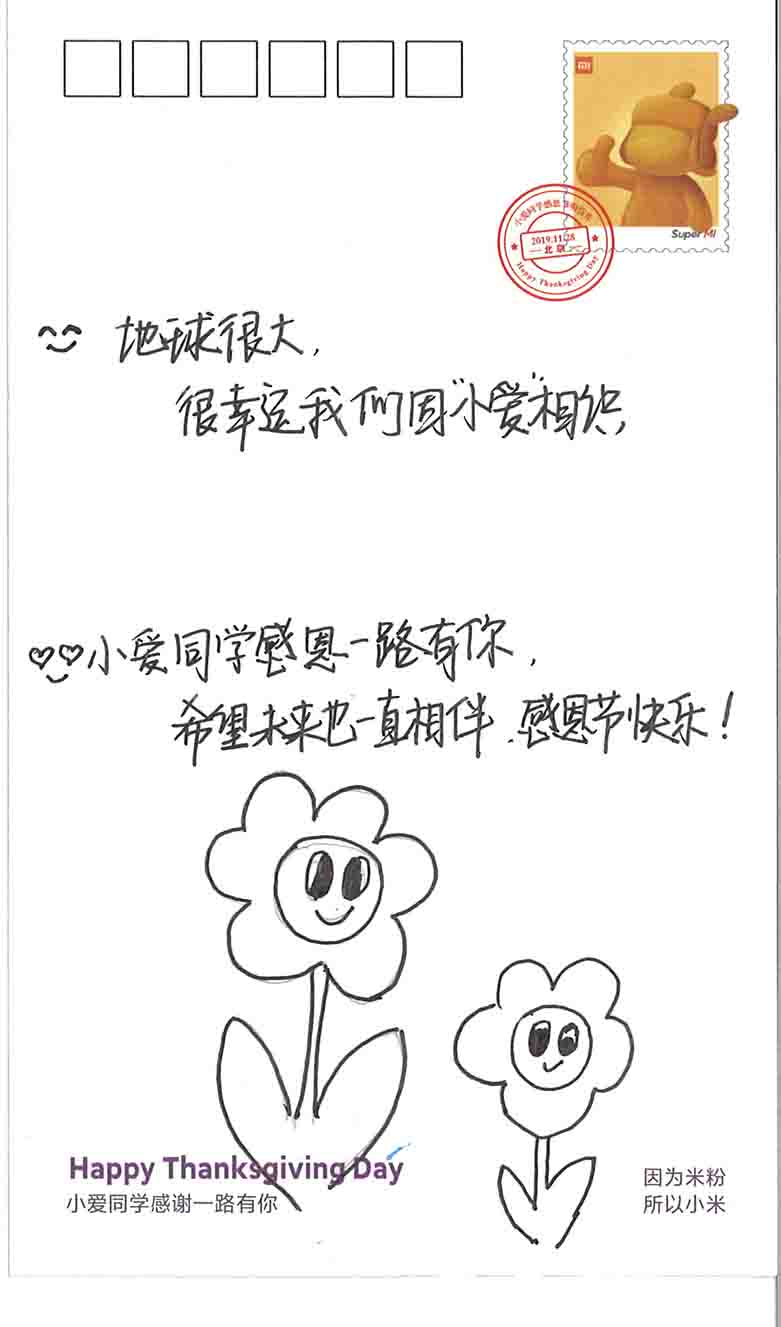 MI
Super MI
小爱同学感恩节明信片
2019.11.28
北京
Happy Thanksgiving Day
地球很大,
很幸运我们因"小爱"相识,
小爱同学感恩一路有你,
希望未来也一直相伴.感恩节快乐!
Happy Thanksgiving Day
小爱同学感谢一路有你
因为米粉
所以小米